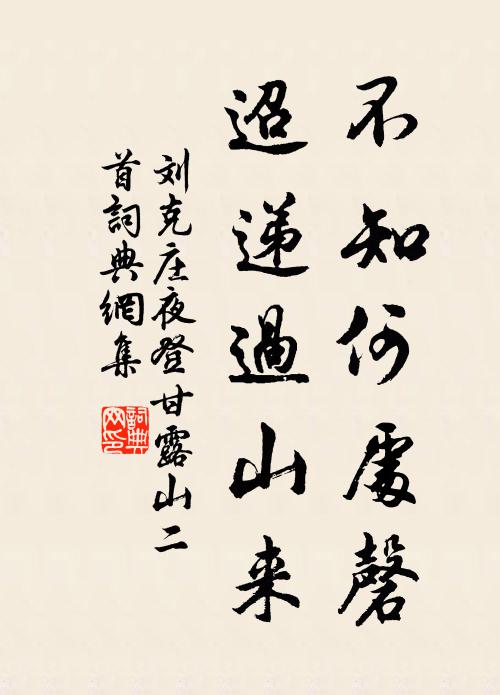 不知何處磬
迢遞過山来
刘克庄夜登甘露山二
首詞典網集
詞典
网印